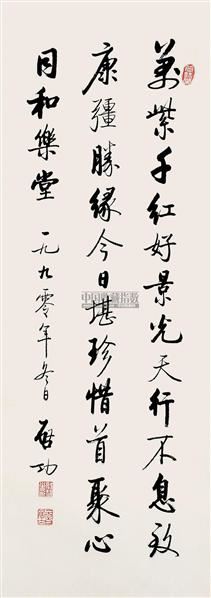 萬紫千紅好景光天行不息致
康彊勝緣今日堪珍惜首聚心
同和樂堂 一九九零年冬日 启功